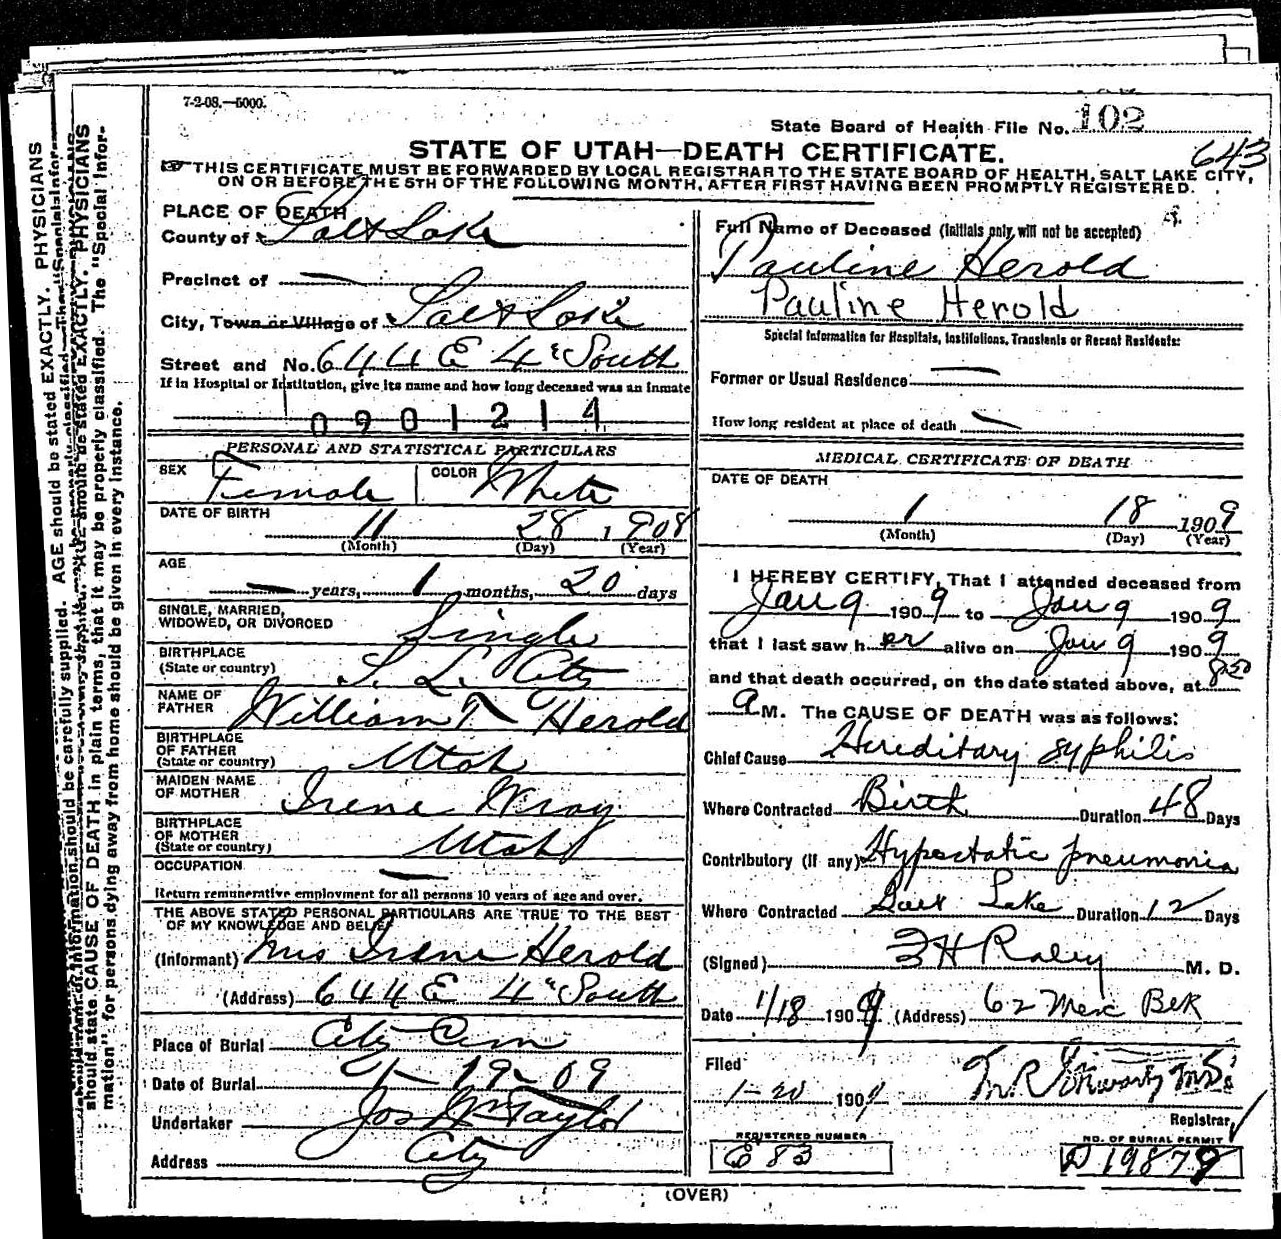 7-2-08.—5000.
State Board of Health File No. 102
643
STATE OF UTAH—DEATH CERTIFICATE.
THIS CERTIFICATE MUST BE FORWARDED BY LOCAL REGISTRAR TO THE STATE BOARD OF HEALTH, SALT LAKE CITY,
ON OR BEFORE THE 5TH OF THE FOLLOWING MONTH, AFTER FIRST HAVING BEEN PROMPTLY REGISTERED.
PLACE OF DEATH
County of Salt Lake
Precinct of —
City, Town or Village of Salt Lake
Street and No. 644 E 4th South
If in Hospital or Institution, give its name and how long deceased was an inmate
0901214
PERSONAL AND STATISTICAL PARTICULARS
SEX Female COLOR White
DATE OF BIRTH
11 28 1908
(Month) (Day) (Year)
AGE
— years, 1 months, 20 days
SINGLE, MARRIED,
WIDOWED, OR DIVORCED Single
BIRTHPLACE
(State or country) S. L. City
NAME OF
FATHER William T Herold
BIRTHPLACE
OF FATHER
(State or country) Utah
MAIDEN NAME
OF MOTHER Irene Wray
BIRTHPLACE
OF MOTHER
(State or country) Utah
OCCUPATION —
Return remunerative employment for all persons 10 years of age and over.
THE ABOVE STATED PERSONAL PARTICULARS ARE TRUE TO THE BEST
OF MY KNOWLEDGE AND BELIEF
(Informant) Mrs Irene Herold
(Address) 644 E 4th South
Place of Burial City Cem
Date of Burial 1-19-09
Undertaker Jos Wm Taylor
Address City
Full Name of Deceased (Initials only, will not be accepted)
Pauline Herold
Pauline Herold
Special Information for Hospitals, Institutions, Transients or Recent Residents:
Former or Usual Residence —
How long resident at place of death —
MEDICAL CERTIFICATE OF DEATH
DATE OF DEATH
1 18 1909
(Month) (Day) (Year)
I HEREBY CERTIFY, That I attended deceased from
Jan 9 1909 to Jan 9 1909
that I last saw her alive on Jan 9 1909
and that death occurred, on the date stated above, at 8:50
a M. The CAUSE OF DEATH was as follows:
Chief Cause Hereditary syphilis
Where Contracted Birth Duration 48 Days
Contributory (If any) Hypostatic pneumonia
Where Contracted Salt Lake Duration 12 Days
(Signed) F H Raley M. D.
Date 1/18 1909 (Address) 62 Merc Blk
Filed
1-20 1909
Registrar
REGISTERED NUMBER
E 83
NO. OF BURIAL PERMIT
D 19879
(OVER)
AGE should be stated EXACTLY. PHYSICIANS
should state CAUSE OF DEATH in plain terms, that it may be properly classified. The "Special Infor-
mation" for persons dying away from home should be given in every instance.